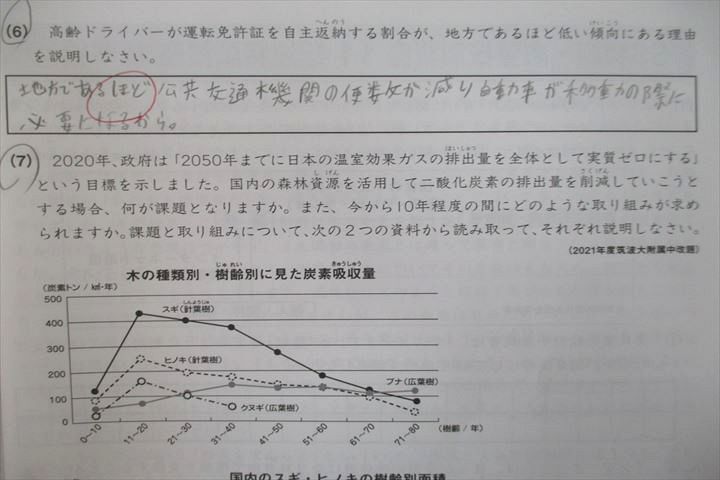 (6) 高齢ドライバーが運転免許証を自主返納する割合が、地方であるほど低い傾向にある理由
へんのう
けいこう
を説明しなさい。
地方であるほど公共交通機関の便数が減り自動車が移動の際に
必要になるから。
(7) 2020年、政府は「2050年までに日本の温室効果ガスの排出量を全体として実質ゼロにする」
はいしゅつ
という目標を示しました。国内の森林資源を活用して二酸化炭素の排出量を削減していこうと
しげん
さくげん
する場合、何が課題となりますか。また、今から10年程度の間にどのような取り組みが求め
られますか。課題と取り組みについて、次の2つの資料から読み取って、それぞれ説明しなさい。
(2021年度筑波大附属中改題)
じゅれい
きゅうしゅう
木の種類別・樹齢別に見た炭素吸収量
(炭素トン/km²・年)
500
400
300
200
100
0
しんようじゅ
スギ(針葉樹)
ヒノキ(針葉樹)
ブナ(広葉樹)
クヌギ(広葉樹)
0〜10
11〜20
21〜30
31〜40
41〜50
51〜60
61〜70
71〜80
(樹齢/年)
国内のスギ・ヒノキの樹齢別面積